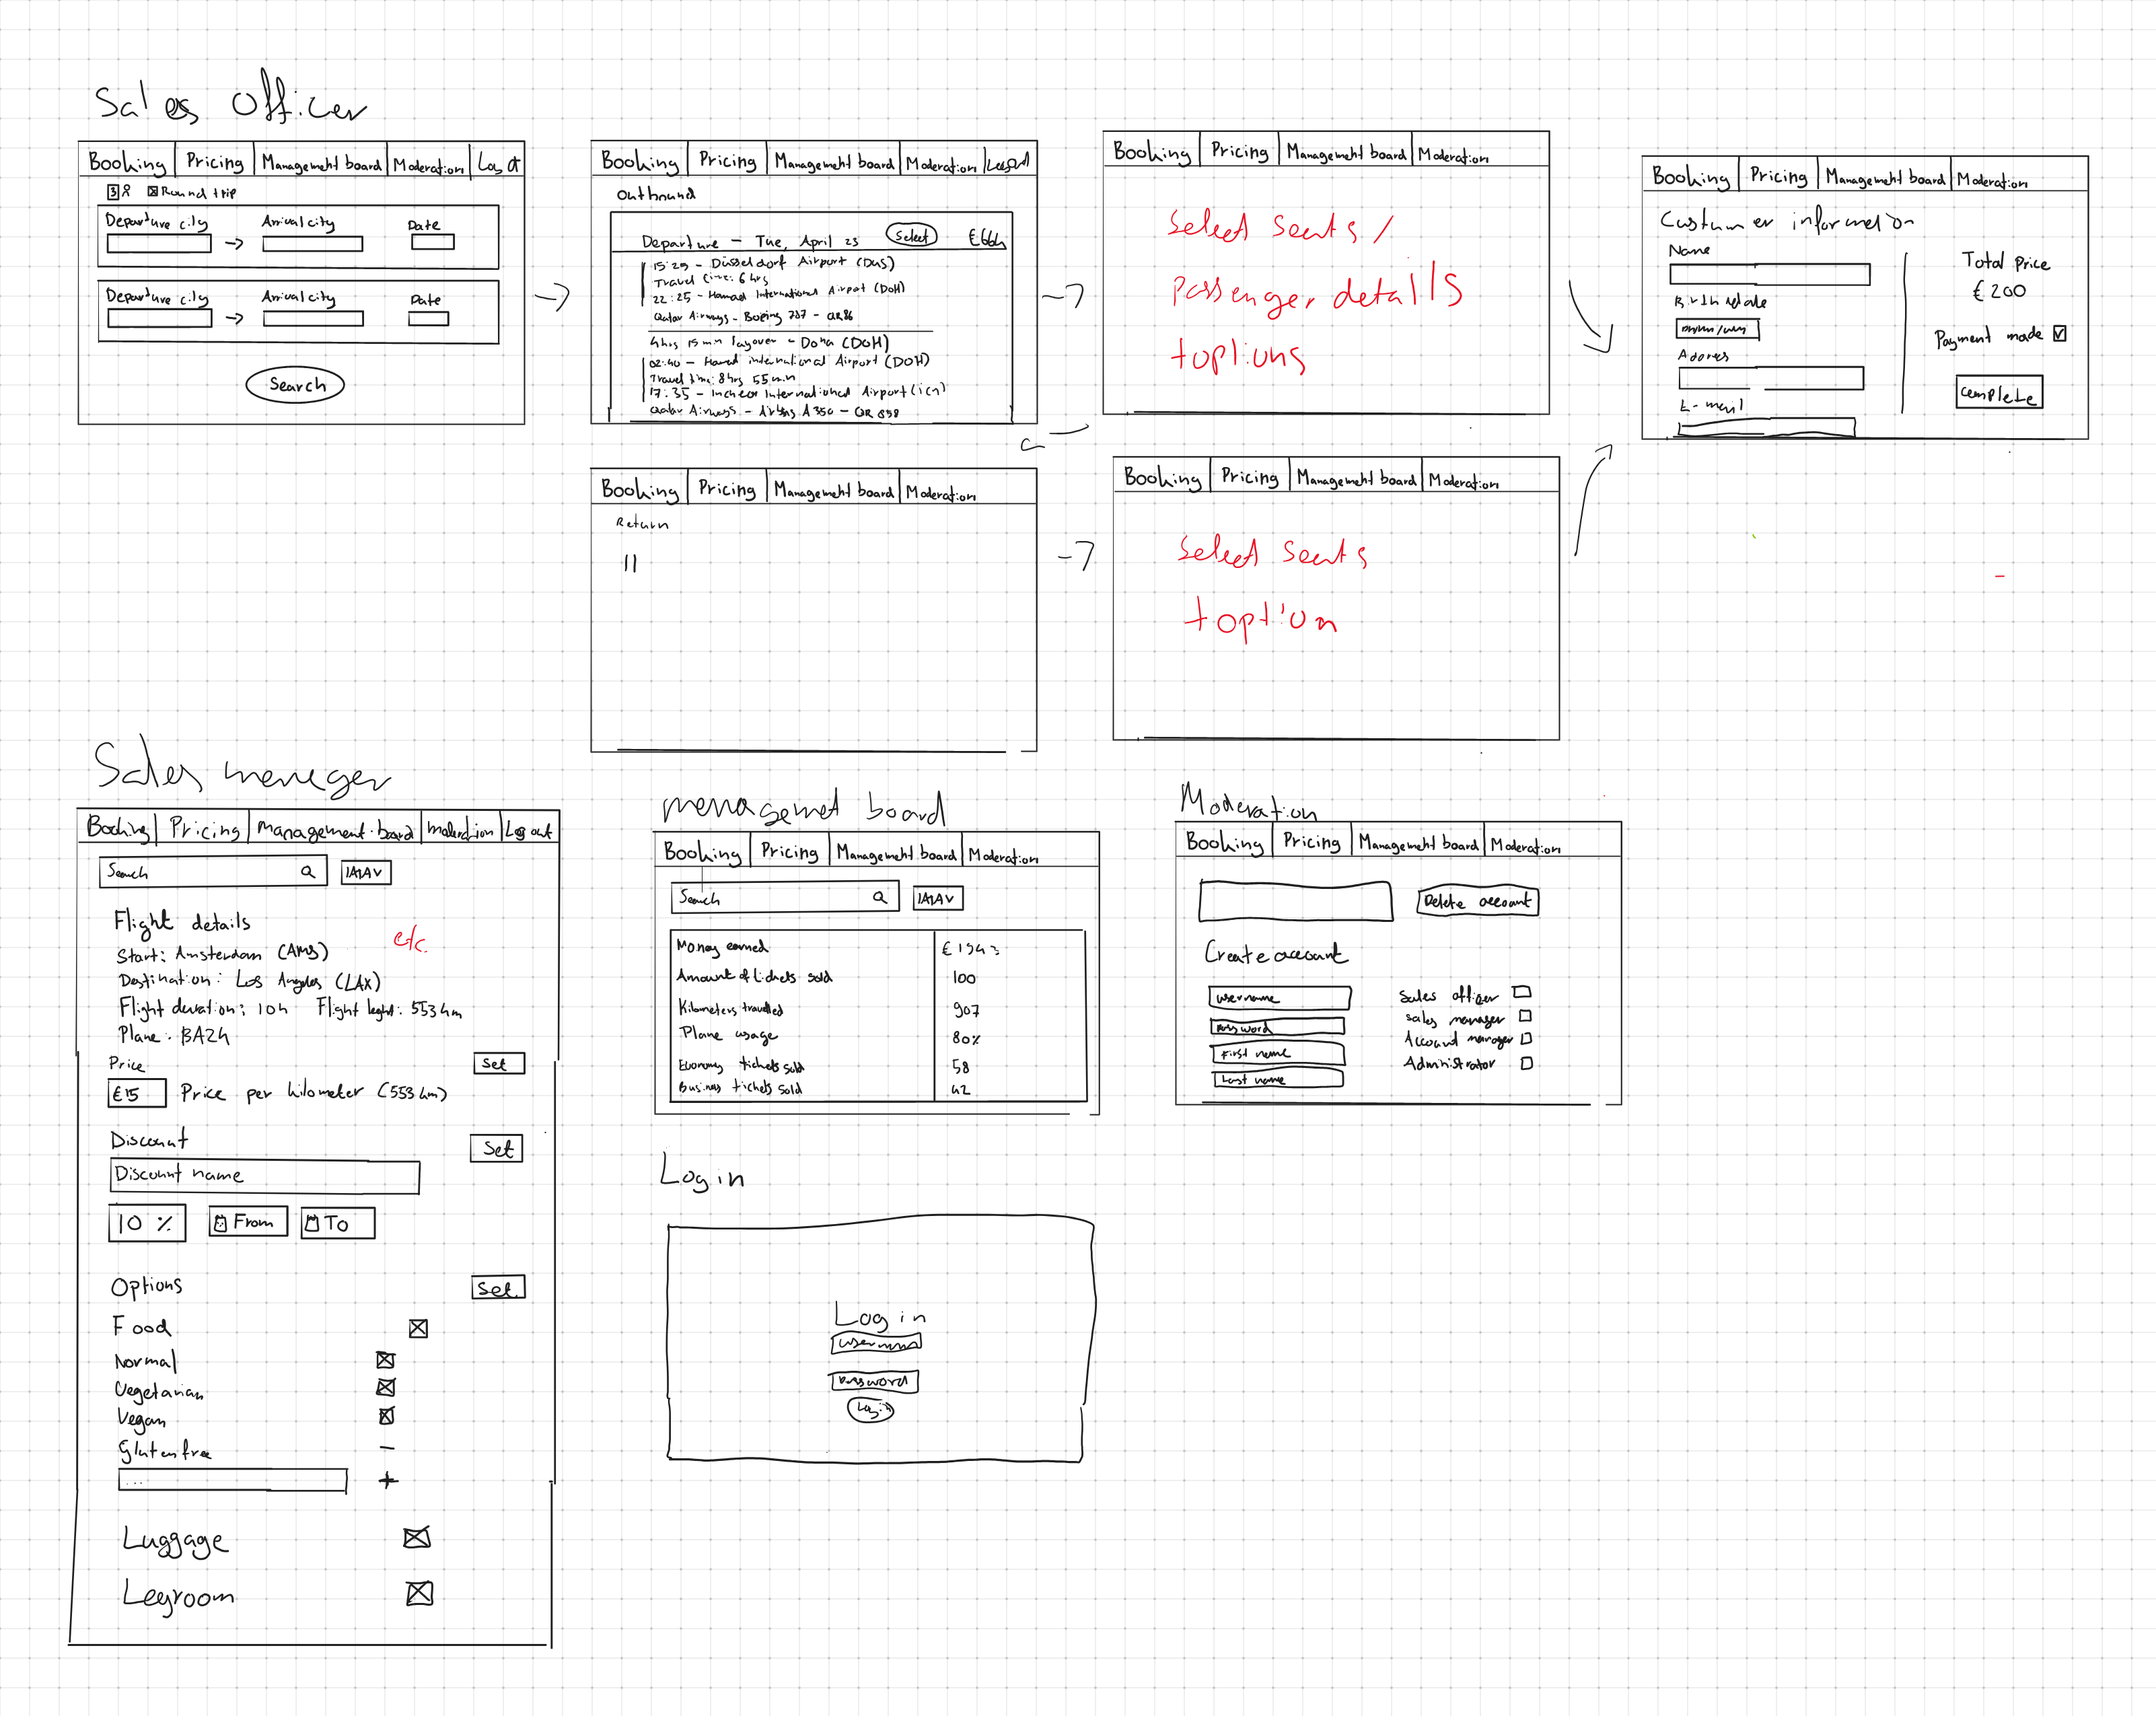 Sales Officer
Booking Pricing Management board Moderation
Round trip
Departure city Arrival city Date
Departure city Arrival city Date
Search
Booking Pricing Management board Moderation
Outbound
Departure - Tue, April 23 Select
15:25 - Düsseldorf Airport (DUS)
Travel time: 6 hrs
22:25 - Hamad International Airport (DOH)
Qatar Airways - Boeing 787 - QR86
4 hrs 15 min layover - Doha (DOH)
02:40 - Hamad international Airport (DOH)
Travel time: 8 hrs 55 min
17:35 - Incheon International Airport (icn)
Qatar Airways - Airbus A350 - QR 858
Booking Pricing Management board Moderation
Select seats /
passenger details
+options
Booking Pricing Management board Moderation
Custumer information
Name
Birthdate
Adores
E-mail
Total Price
€ 200
Payment made
complete
Booking Pricing Management board Moderation
Return
Booking Pricing Management board Moderation
Select seats
+option
Sales meneger
Booking Pricing Management board Moderation Log out
Search
Flight details
etc.
Start: Amsterdam (AMS)
Destination: Los Angeles (LAX)
Flight duration: 10h Flight leght: 553 km
Plane: BA24
Price Set
€15 Price per kilometer (553 km)
Discount Set
Discount name
10 % From To
Options Set
Food
Normal
Vegetarian
Vegan
Gluten free -
... +
Luggage
Legroom
menagemet board
Booking Pricing Management board Moderation
Search
Money earned
Amount of tickets sold 100
Kilometers travelled 907
Plane usage 80%
Economy tickets sold 58
Business tickets sold 42
Moderation
Booking Pricing Management board Moderation
Delete account
Create account
username
password
First name
Last name
Sales officer
Sales manager
Account manager
Administrator
Log in
Log in
username
password
Login